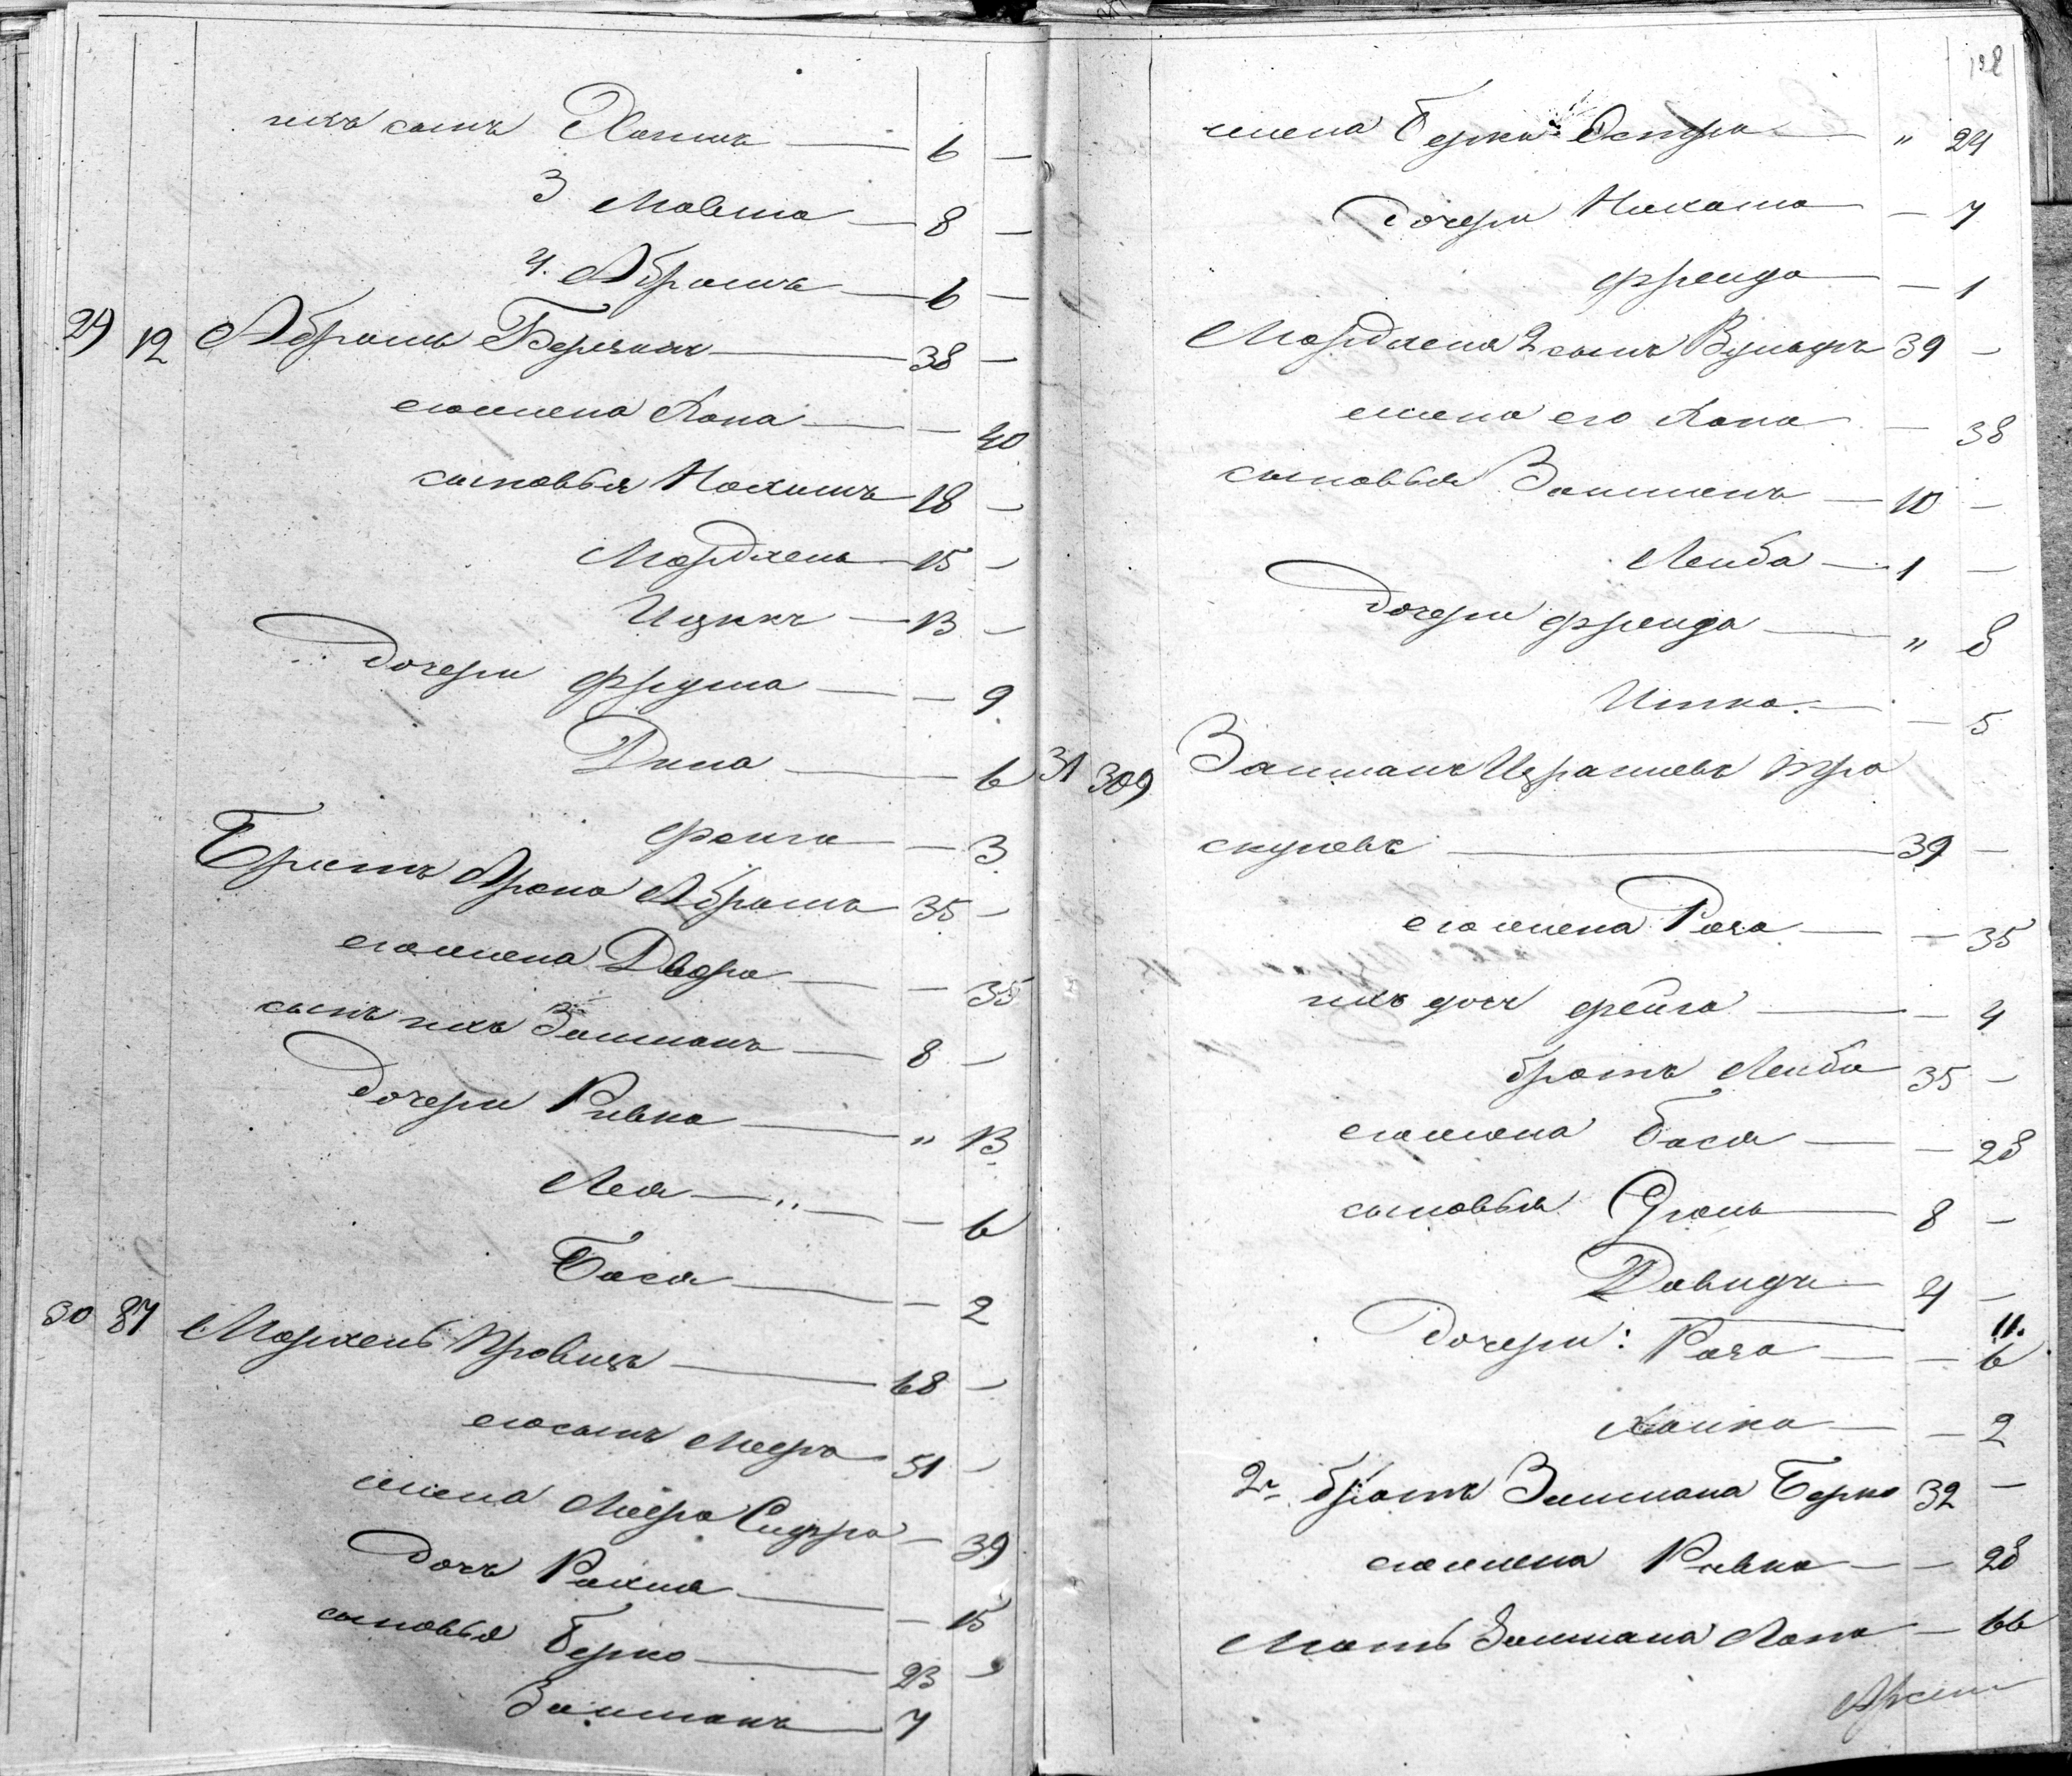 ихъ сынъ Хаимъ — 6 —
3 Мовша — 8 —
4. Абрамъ — 6 —
29 12 Абрамъ — 38 —
его жена Хана — — 40
сыновья Нохимъ 18 —
Мордхель — 15 —
Ицикъ — 13 —
дочери Фрума — — 9
Дина — — 6
Фейга — 3
Братъ Арона Абрамъ 35 —
его жена Двора — — 35
сынъ ихъ Залманъ — 8 —
дочери Ривка — " 13
Лея — — 6
Бася — — 2
30 87 — 68 —
его сынъ Мееръ 51 —
жена Меера — 39
дочь — — 15
сыновья Берко — 23 —
Залманъ — 7
198
жена Берки Эстра — " 24
дочери — 7
Фрейда — 1
Мордхеля 2 сынъ Вульфъ 39 —
жена его Хана — 38
сыновья Залманъ — 10 —
Лейба — 1 —
дочери Фрейда — " 8
Итка — — 5
31 309 Залманъ Израилевъ
— 39 —
его жена — — 35
ихъ дочь Фейга — — 4
братъ Лейба 35 —
его жена Бася — — 28
сыновья Сроль — 8 —
Давидъ — 4 —
11.
дочери: — — 6
Хайка — — 2
2й братъ Залмана Берко 32 —
его жена Ривка — — 28
Мать Залмана Хана — 66